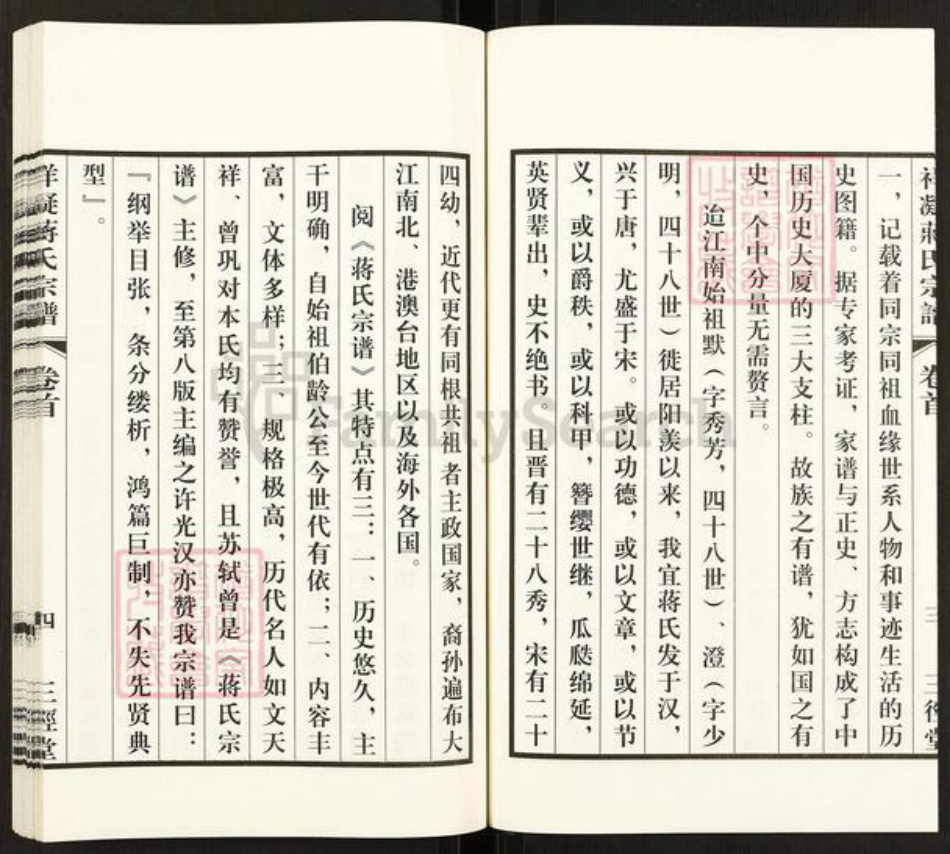 一，记载着同宗同祖血缘世系人物和事迹生活的历
史图籍。据专家考证，家谱与正史、方志构成了中
国历史大厦的三大支柱。故族之有谱，犹如国之有
史，个中分量无需赘言。
迨江南始祖默（字秀芳，四十八世）、澄（字少
明，四十八世）徙居阳羡以来，我宜蒋氏发于汉，
兴于唐，尤盛于宋。或以功德，或以文章，或以节
义，或以爵秩，或以科甲，簪缨世继，瓜瓞绵延，
英贤辈出，史不绝书，且晋有二十八秀，宋有二十
四幼，近代更有同根共祖者主政国家，裔孙遍布大
江南北、港澳台地区以及海外各国。
阅《蒋氏宗谱》其特点有三：一、历史悠久，主
干明确，自始祖伯龄公至今世代有依；二、内容丰
富，文体多样；三、规格极高，历代名人如文天
祥、曾巩对本氏均有赞誉，且苏轼曾是《蒋氏宗
谱》主修，至第八版主编之许光汉亦赞我宗谱曰：
『纲举目张，条分缕析，鸿篇巨制，不失先贤典
型』。
祥凝蒋氏宗谱
卷首
四
三徑堂
FamilySearch